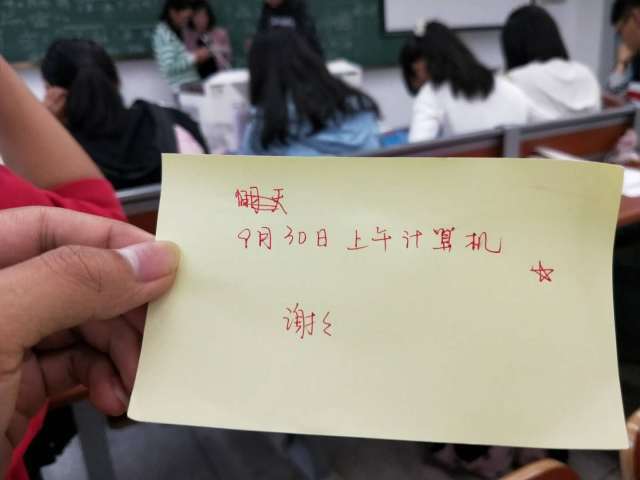 明天
9月30日上午计算机
☆
谢々